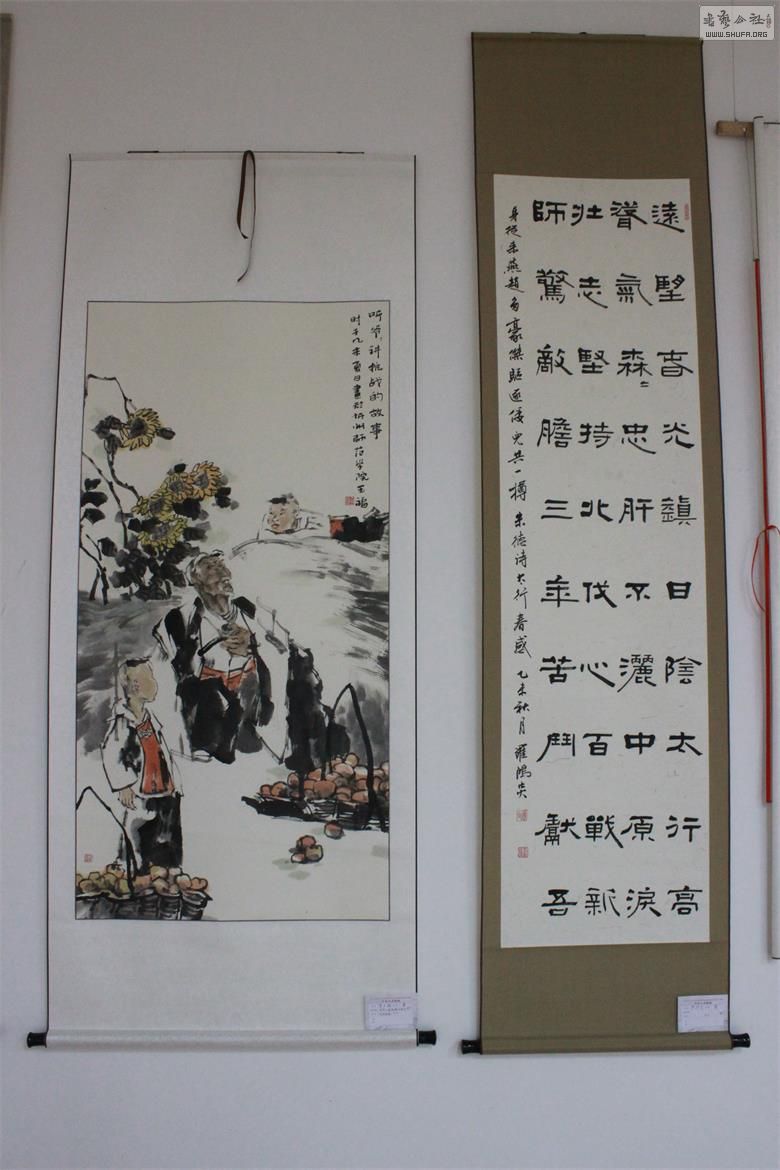 書藝公社
WWW.SHUFA.ORG
遠望春光鎮日陰太行高
聳氣森々忠肝不灑中原淚
壯志堅持北伐心百戰新
師驚敵膽三年苦鬥獻吾
身從来燕趙多豪傑驅逐倭兒共一樽 朱德诗太行春感 乙未秋月 羅鴻
听爷々讲抗战的故事
时于乙未夏日畫於忻州師范学院